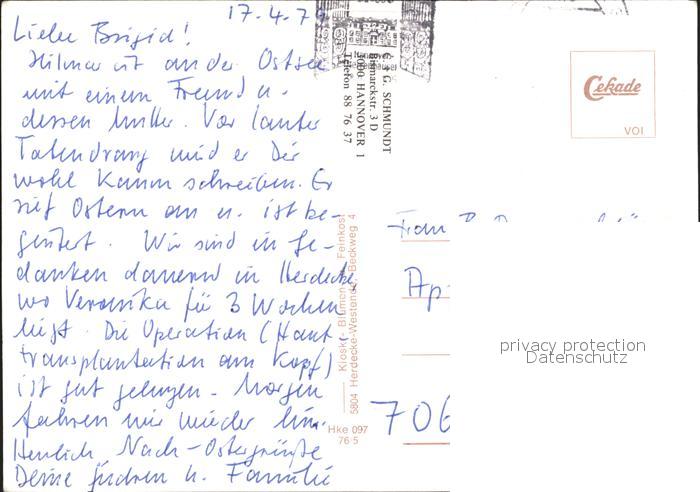 17.4.79
Liebe Brigid!
Hilmar ist an der Ostsee
mit einem Freund u.
dessen Mutter. Vor lauter
Tatendrang wird er Dir
wohl kaum schreiben. Er
rief Ostern an u. ist be-
geistert. Wir sind in Ge-
danken dauernd in Herdecke
wo Veronika für 3 Wochen
liegt. Die Operation (Haut
transplantation am Kopf)
ist gut gelungen. Morgen
fahren wir wieder hin.
Herzlich Nach-Ostergrüße
Deine u. Familie
G. SCHMUNDT
Bismarckstr. 3 D
3000 HANNOVER 1
Telefon 88 76 37
Kiosk - Blumen - Feinkost
5804 Herdecke-Westende Beckweg 4
Hke 097
76 5
Cekade
VOI
Frau
Ap
706
privacy protection
Datenschutz